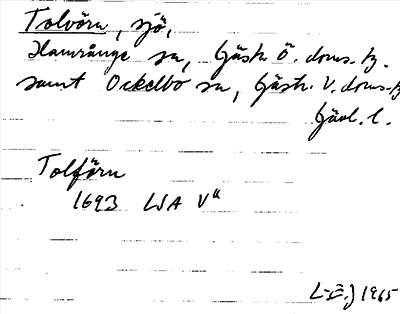 Tolvörn, sjö,
Hamrånge sn, Gästr. Ö. doms.
samt Ockelbo sn, Gästr. V. doms.
Gävl. l.
Tolförn
1693 LSA V
1965